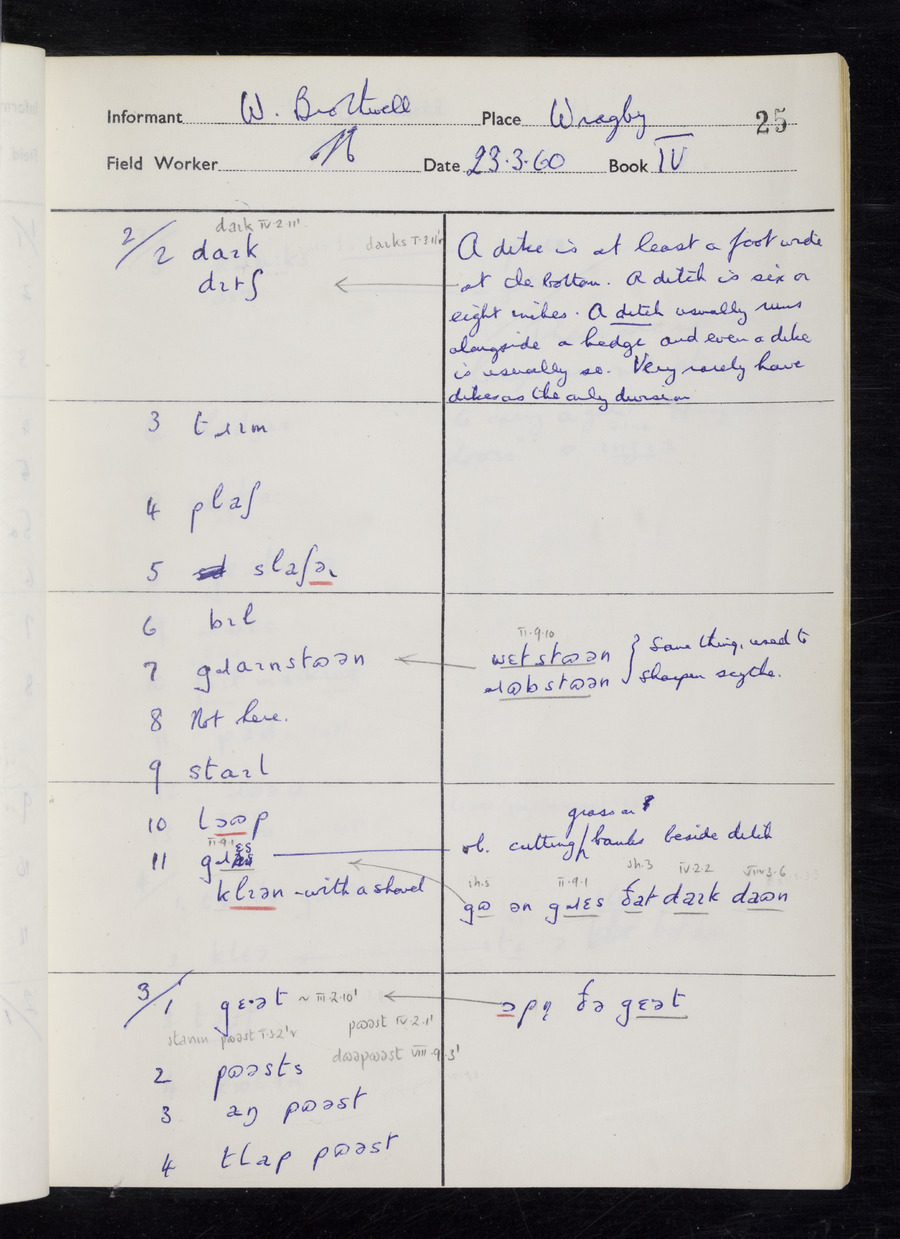 Informant W. Brothwell Place Wragby 25
Field Worker Date 23.3.60 Book IV
2/2 daɪk
dark IV.2.11'
dɪtʃ
A dike is at least a foot wide
at the bottom. A ditch is six or
eight inches. A ditch usually runs
alongside a hedge and even a dike
is usually so. Very rarely have
dikes as the only division
3 tɹɪm
4 plaʃ
5 slaʃəɹ
6 bɪl
7 gɹaɪnstʊən
II.9.10
wɛtstʊən } Same thing, used to
ɹʊbstʊən } sharpen scythe.
8 Not here.
9 staɪl
10 lɔʊp
11 gɹɛs
II.9.1
klɪən - with a shovel
grass on
ob. cutting / banks beside ditch
sh.5 II.9.1 sh.3 IV.2.2 VIII.3.6
gʊ ən gɹɛs ðat daɪk daʊn
3/1 gɛ·ət ~ III.2.10'
ɔpn̩ ðə gɛət
pʊəst IV.2.1'
dʊəpʊəst VIII.9.3'
2 pʊəsts
3 aŋ pʊəst
4 tlap pʊəst